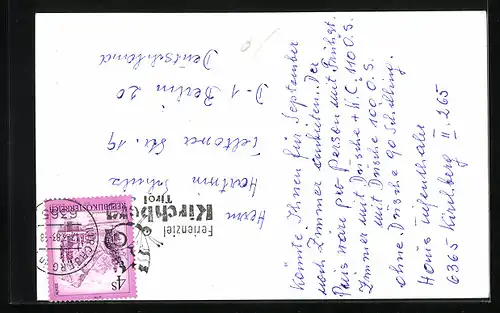 Könnte Ihnen für September
noch Zimmer anbieten. Der
Preis wäre pro Person mit Frühst.
Zimmer mit Dusche + W.C. 110 Ö.S.
mit Dusche 100 Ö.S.
ohne Dusche 90 Schilling.
Haus Tiefenthaler
6365 Kirchberg II. 265
Herrn
Hartmu Schulz
Teltower Str. 19
D-1 Berlin 20
Deutschland
Ferienziel
Kirchberg
Tirol
REPUBLIK ÖSTERREICH
4S
6365
KIRCHBERG